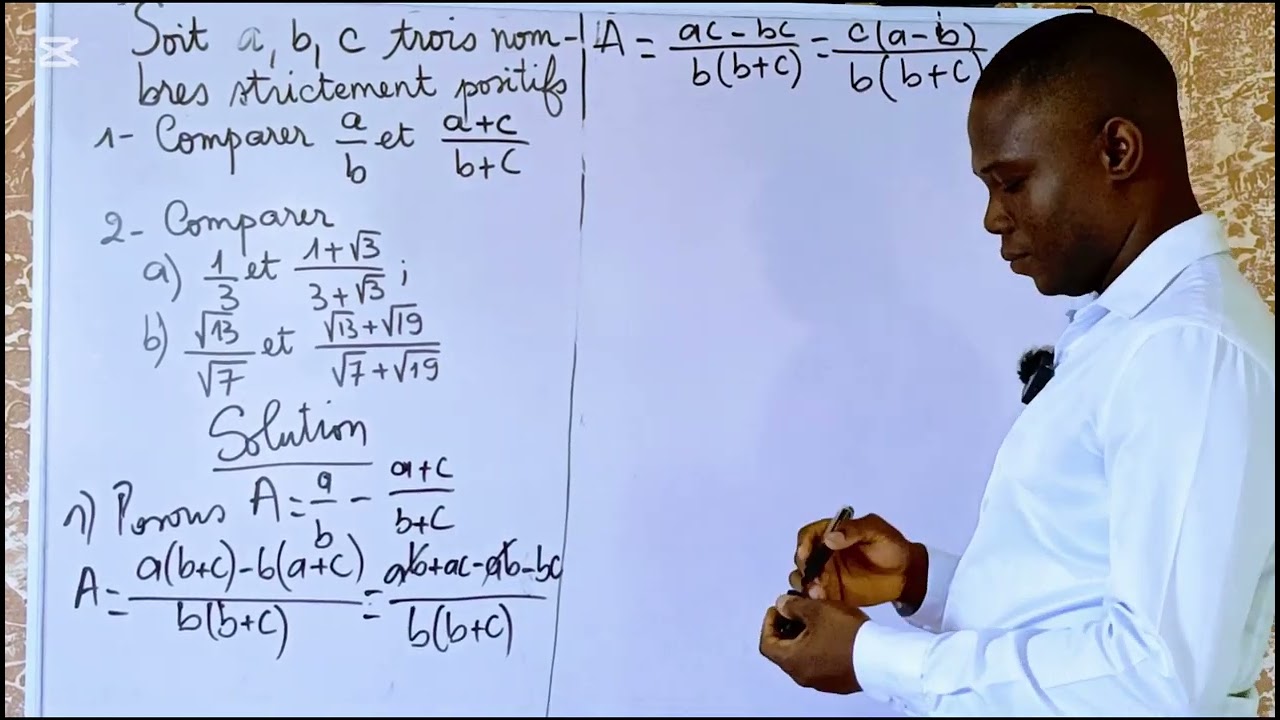 Soit a, b, c trois nom-
bres strictement positifs
1- Comparer a/b et (a+c)/(b+c)
2- Comparer
a) 1/3 et (1+√3)/(3+√3) ;
b) √13/√7 et (√13+√19)/(√7+√19)
Solution
1) Posons A = a/b - (a+c)/(b+c)
A = (a(b+c)-b(a+c))/(b(b+c)) = (ab+ac-ab-bc)/(b(b+c))
A = (ac-bc)/(b(b+c)) = (c(a-b))/(b(b+c))